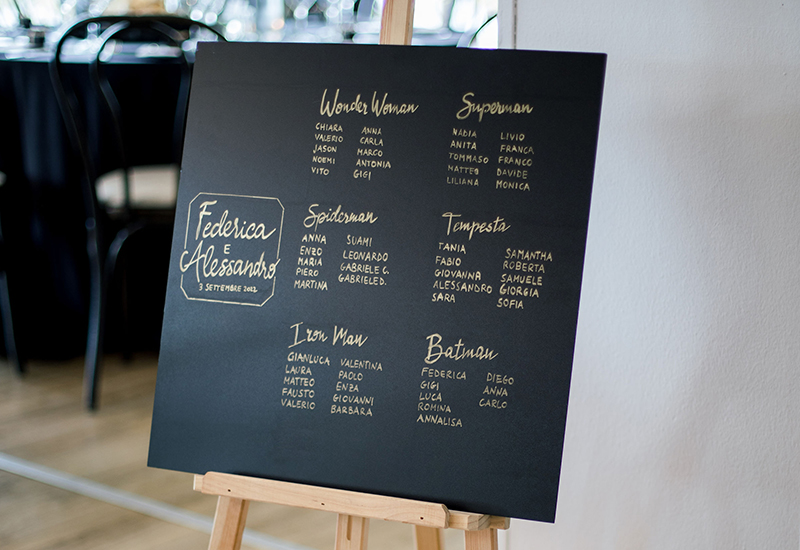 Federica
E
Alessandro
3 SETTEMBRE 2022
Wonder Woman
CHIARA ANNA
VALERIO CARLA
JASON MARCO
NOEMI ANTONIA
VITO GIGI
Superman
NADIA LIVIO
ANITA FRANCA
TOMMASO FRANCO
MATTEO DAVIDE
LILIANA MONICA
Spiderman
ANNA SUAMI
ENZO LEONARDO
MARIA GABRIELE C.
PIERO GABRIELE D.
MARTINA
Tempesta
TANIA SAMANTHA
FABIO ROBERTA
GIOVANNA SAMUELE
ALESSANDRO GIORGIA
SARA SOFIA
Iron Man
GIANLUCA VALENTINA
LAURA PAOLO
MATTEO ENZA
FAUSTO GIOVANNI
VALERIO BARBARA
Batman
FEDERICA DIEGO
GIGI ANNA
LUCA CARLO
ROMINA
ANNALISA